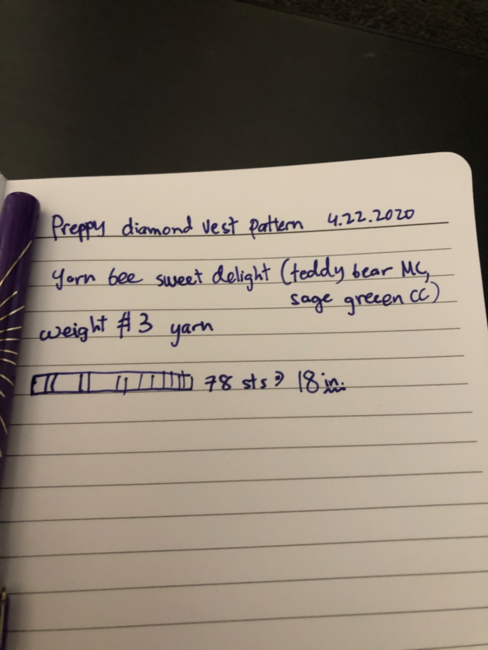 Preppy diamond vest pattern 4.22.2020
Yarn bee sweet delight (teddy bear MC,
sage greeen CC)
weight #3 yarn
78 sts → 18 in.